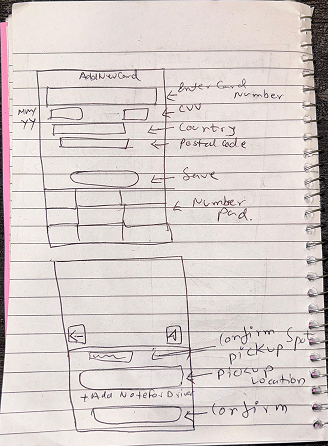 Add New Card
Enter Card
Number
MM/
YY
CVV
Country
Postal Code
Save
Number
Pad.
Confirm
pickup Spot
pickup
Location
+ Add Note for Driver
Confirm